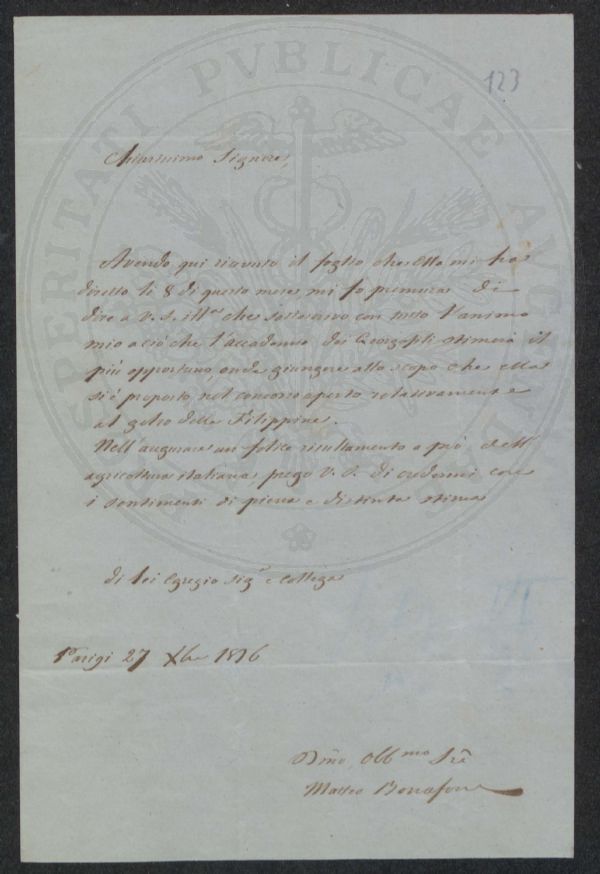 123
PROSPERITATI PVBLICAE AVGENDAE
Chiarissimo Signore,
Avendo qui ricevuto il foglio che Ella mi ha
diretto le 8 di questo mese mi fo premura di
dire a V. S. Ill.ma che sottoscrivo con tutto l'animo
mio a ciò che l'accademia dei Georgofili stimerà il
più opportuno, onde giungere allo scopo che ella
si è proposto, nel concorso aperto relativamente
al gelso delle Filippine.
Nell'augurare un felice risultamento a prò dell'
agricoltura italiana prego V. S. di credermi con
i sentimenti di piena e distinta stima
di Lei Egregio Sig.e e Collega
Parigi 27 Xbre
Dmo Obbmo
Matteo Bonafous